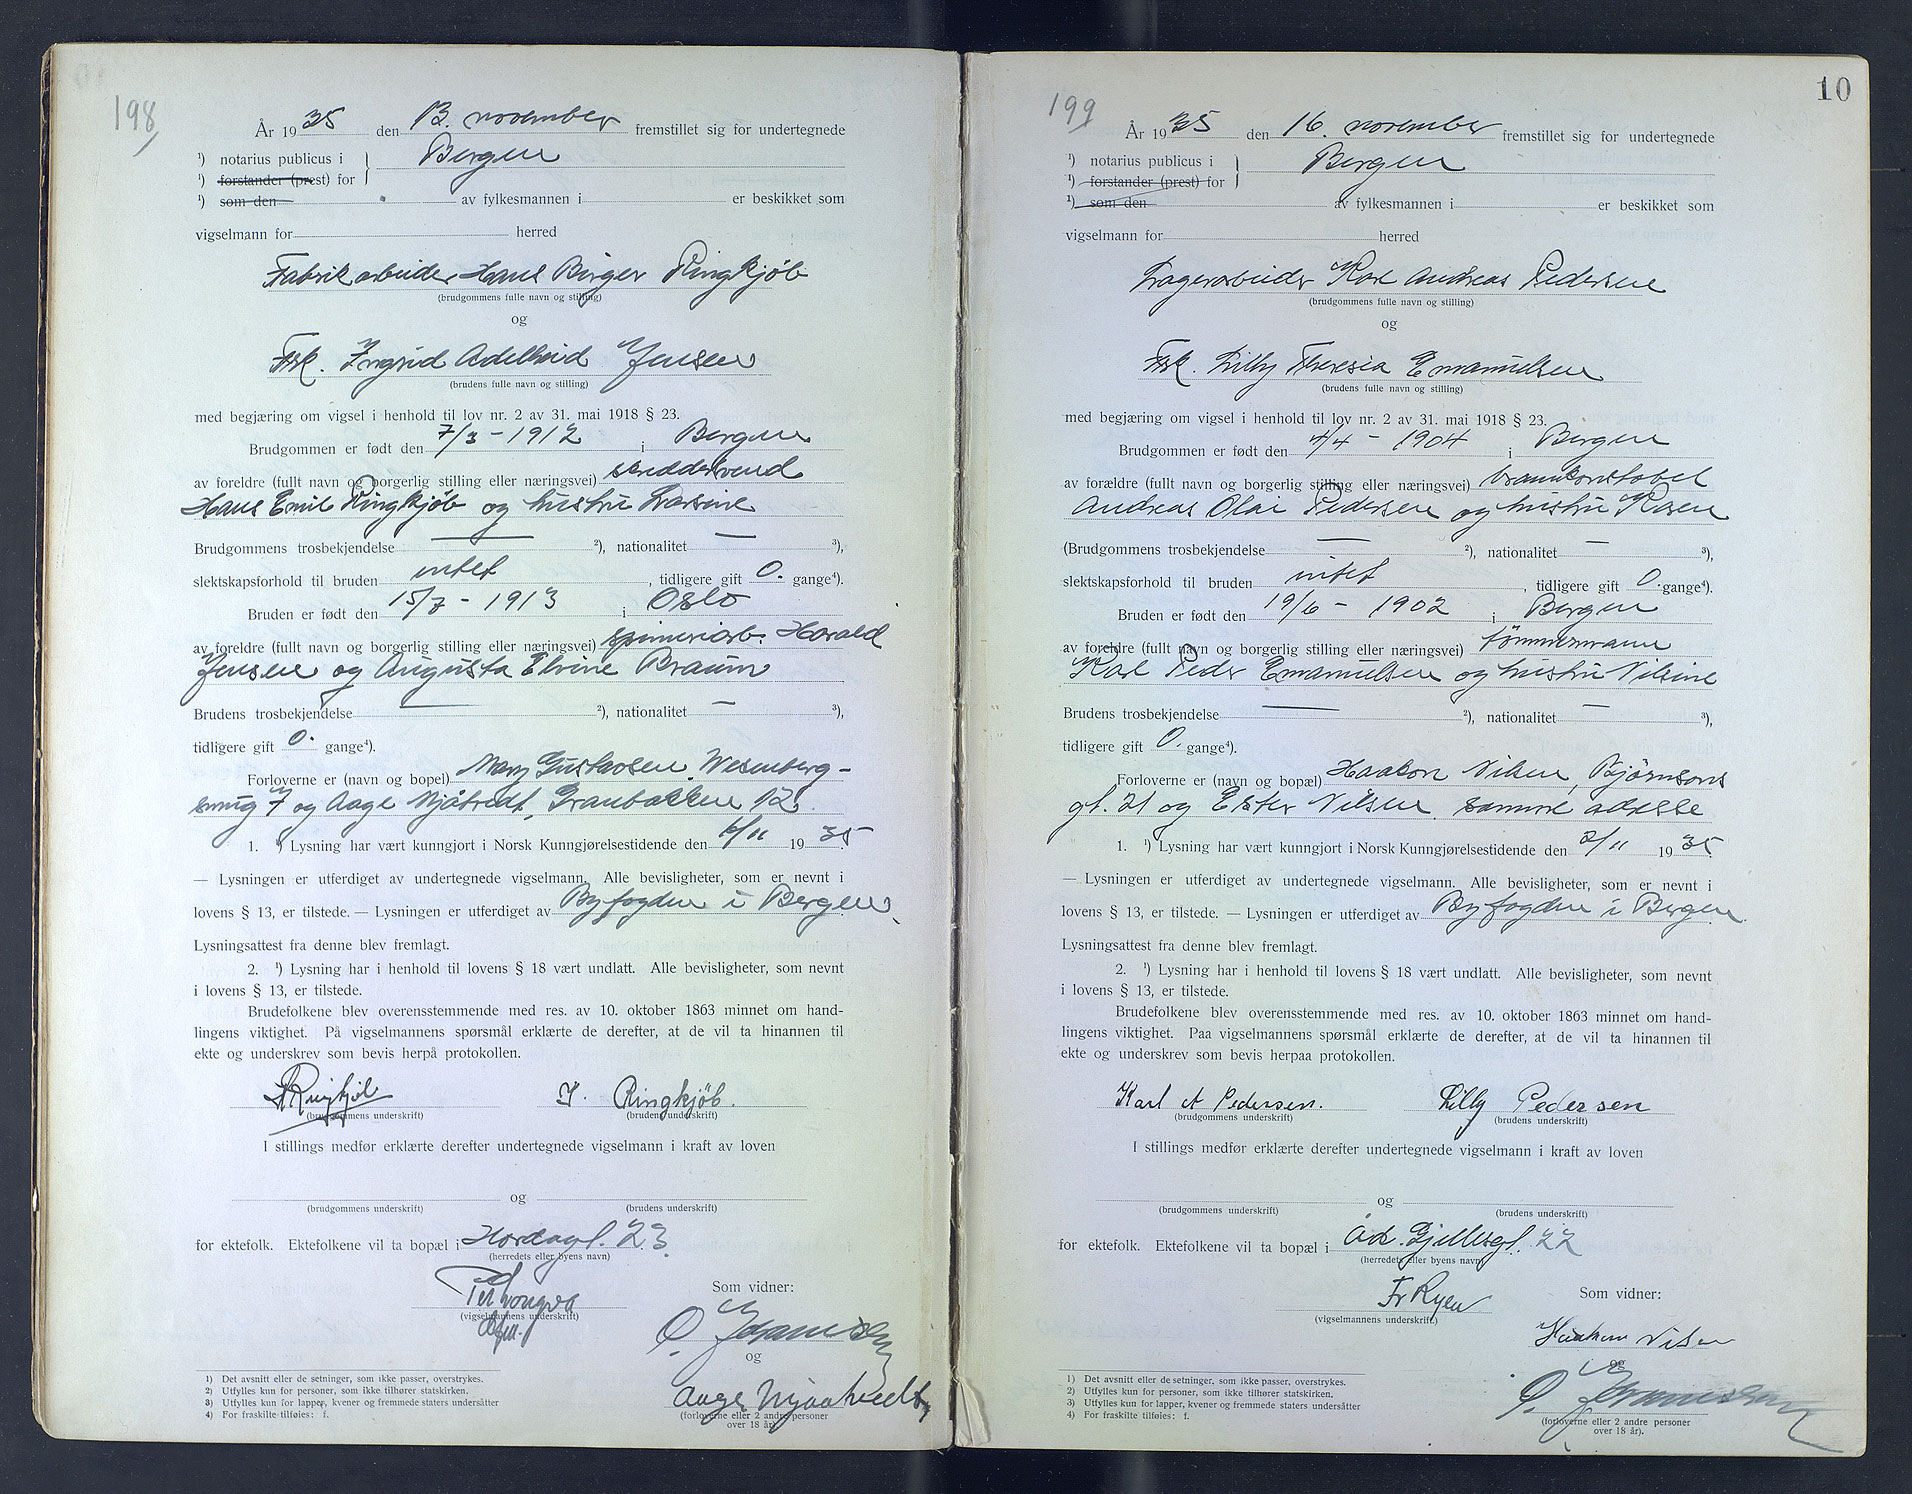 198
År 1935 den 13. november fremstillet sig for undertegnede
¹) notarius publicus i } Bergen
¹) forstander (prest) for
¹) som den av fylkesmannen i er beskikket som
vigselmann for herred
Fabrikarbeider Hans Birger Ringkjöb
(brudgommens fulle navn og stilling)
og
Frk. Ingrid Adelheid Jensen
(brudens fulle navn og stilling)
med begjæring om vigsel i henhold til lov nr. 2 av 31. mai 1918 § 23.
Brudgommen er født den 7/3 - 1912 i Bergen
av foreldre (fullt navn og borgerlig stilling eller næringsvei) skreddersvend
Hans Emil Ringkjöb og hustru Larsine
Brudgommens trosbekjendelse — ²), nationalitet — ³),
slektskapsforhold til bruden intet, tidligere gift 0. gange⁴).
Bruden er født den 15/7 - 1913 i Oslo
av foreldre (fullt navn og borgerlig stilling eller næringsvei) spinneriarb. Harald
Jensen og Augusta Elvine Braum
Brudens trosbekjendelse — ²), nationalitet — ³),
tidligere gift 0. gange⁴).
Forloverne er (navn og bopel) Mary Gustavsen, Wesenberg-
smug 7 og Aage Mjåtvedt, Granbakken 12.
1. ¹) Lysning har vært kunngjort i Norsk Kunngjørelsestidende den 6/11 1935
— Lysningen er utferdiget av undertegnede vigselmann. Alle bevisligheter, som er nevnt i
lovens § 13, er tilstede. — Lysningen er utferdiget av Byfogden i Bergen,
Lysningsattest fra denne blev fremlagt.
2. ¹) Lysning har i henhold til lovens § 18 vært undlatt. Alle bevisligheter, som nevnt
i lovens § 13, er tilstede.
Brudefolkene blev overensstemmende med res. av 10. oktober 1863 minnet om hand-
lingens viktighet. På vigselmannens spørsmål erklærte de derefter, at de vil ta hinannen til
ekte og underskrev som bevis herpå protokollen.
H Ringkjöb I. Ringkjöb.
(brudgommens underskrift) (brudens underskrift)
I stillings medfør erklærte derefter undertegnede vigselmann i kraft av loven
og
(brudgommens underskrift) (brudens underskrift)
for ektefolk. Ektefolkene vil ta bopæl i Hordagt. 23.
(herredets eller byens navn)
Som vidner:
(vigselmannens underskrift)
O. Johannessen
og
Aage Mjaatvedt
(forloverne eller 2 andre personer
over 18 år).
1) Det avsnitt eller de setninger, som ikke passer, overstrykes.
2) Utfylles kun for personer, som ikke tilhører statskirken.
3) Utfylles kun for lapper, kvener og fremmede staters undersåtter
4) For fraskilte tilføies: f.
10
199
År 1935 den 16. november fremstillet sig for undertegnede
¹) notarius publicus i } Bergen
¹) forstander (prest) for
¹) som den av fylkesmannen i er beskikket som
vigselmann for herred
Lagerarbeider Karl Andreas Pedersen
(brudgommens fulle navn og stilling)
og
Frk. Lilly Theresia Emanuelsen
(brudens fulle navn og stilling)
med begjæring om vigsel i henhold til lov nr. 2 av 31. mai 1918 § 23.
Brudgommen er født den 4/4 - 1904 i Bergen
av forældre (fullt navn og borgerlig stilling eller næringsvei) brannkonstabel
Andreas Olai Pedersen og hustru Karen
(Brudgommens trosbekjendelse — ²), nationalitet — ³),
slektskapsforhold til bruden intet, tidligere gift 0. gange⁴).
Bruden er født den 19/6 - 1902 i Bergen
av foreldre (fullt navn og borgerlig stilling eller næringsvei) tömmermann
Karl Peder Emanuelsen og hustru Nilsine
Brudens trosbekjendelse — ²), nationalitet — ³),
tidligere gift 0. gange⁴).
Forloverne er (navn og bopæl) Haakon Nilsen, Björnsons
gt. 21 og Ester Nilsen samme adresse
1. ¹) Lysning har vært kunngjort i Norsk Kunngjørelsestidende den 2/11 1935.
— Lysningen er utferdiget av undertegnede vigselmann. Alle bevisligheter, som er nevnt i
lovens § 13, er tilstede. — Lysningen er utferdiget av Byfogden i Bergen.
Lysningsattest fra denne blev fremlagt.
2. ¹) Lysning har i henhold til lovens § 18 vært undlatt. Alle bevisligheter, som nevnt
i lovens § 13, er tilstede.
Brudefolkene blev overensstemmende med res. av 10. oktober 1863 minnet om hand-
lingens viktighet. Paa vigselmannens spørsmål erklærte de derefter, at de vil ta hinannen til
ekte og underskrev som bevis herpaa protokollen.
Karl A Pedersen. Lilly Pedersen
(brudgommens underskrift) (brudens underskrift)
I stillings medfør erklærte derefter undertegnede vigselmann i kraft av loven
og
(brudgommens underskrift) (brudens underskrift)
for ektefolk. Ektefolkene vil ta bopæl i Ad. Gjellesgt. 22
(herredets eller byens navn)
Fr Ryen Som vidner:
(vigselmannens underskrift)
Haakon Nilsen
og
O. Johannessen
(forloverne eller 2 andre personer
over 18 år).
1) Det avsnitt eller de setninger, som ikke passer, overstrykes.
2) Utfylles kun for personer, som ikke tilhører statskirken.
3) Utfylles kun for lapper, kvener og fremmede staters undersåtter
4) For fraskilte tilføies: f.